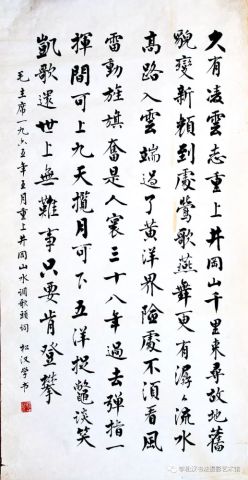 久有凌雲志重上井岡山千里來尋故地舊
貌變新顏到處鶯歌燕舞更有潺々流水
高路入雲端過了黃洋界險處不須看風
雷動旌旗奮是人寰三十八年過去彈指一
揮間可上九天攬月可下五洋捉鱉談笑
凱歌還世上無難事只要肯登攀
毛主席一九六五年五月重上井岡山水调歌頭詞 松汉学书
李松汉书法摄影艺术馆